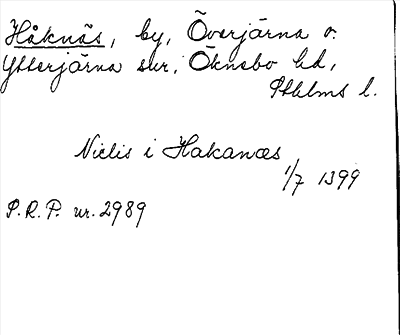 Håknäs, by, Överjärna o.
Ytterjärna snr, Öknebo hd,
Sthlms l.
Niclis i Hakanæs
1/7 1399
P.R.P. nr. 2989